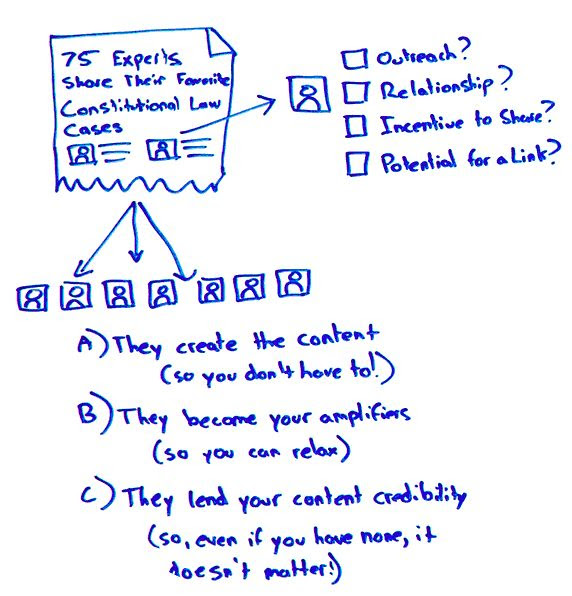 75 Experts
Share Their Favorite
Constitutional Law
Cases
Outreach?
Relationship?
Incentive to Share?
Potential for a Link?
A) They create the content
(so you don't have to!)
B) They become your amplifiers
(so you can relax)
C) They lend your content credibility
(so, even if you have none, it
doesn't matter!)